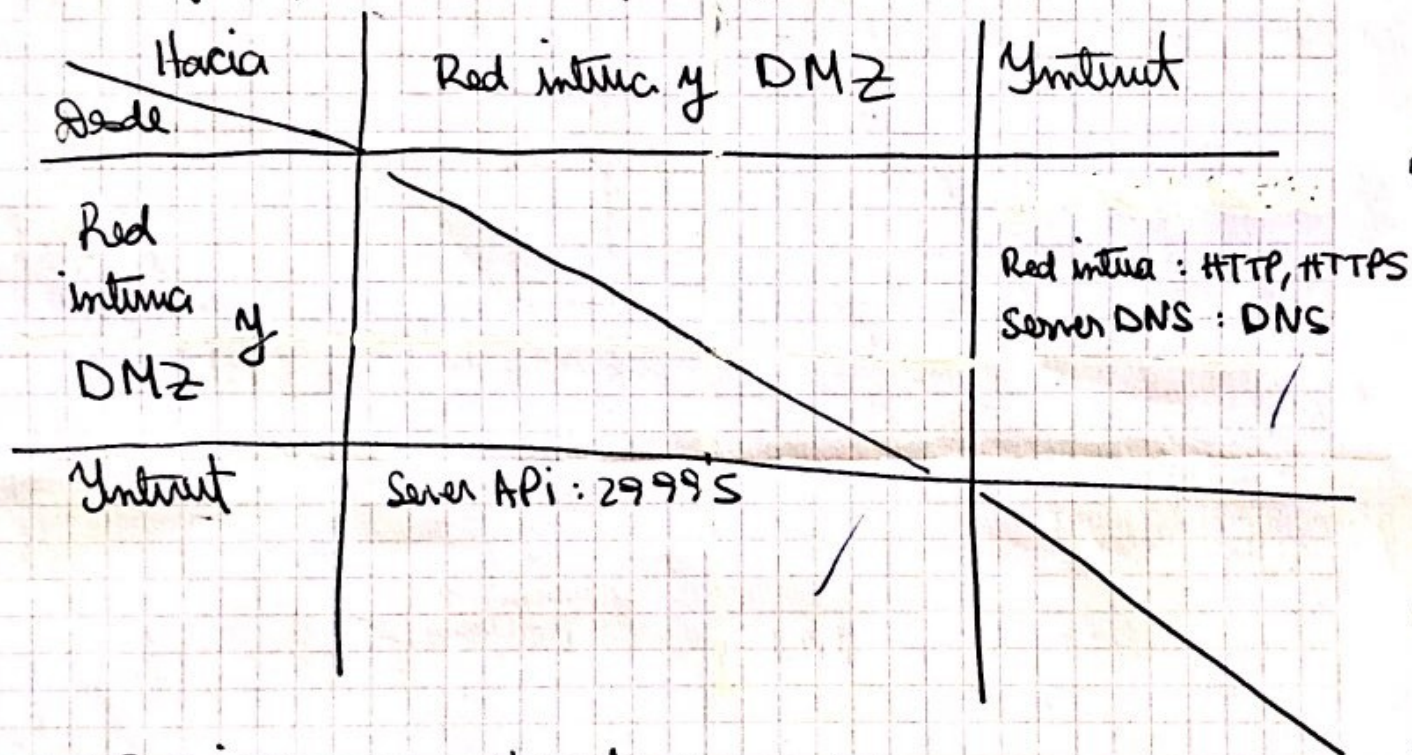 Hacia
Desde
Red interna y DMZ
Internet
Red
interna y
DMZ
Red interna : HTTP, HTTPS
Server DNS : DNS
Internet
Server APi : 29995